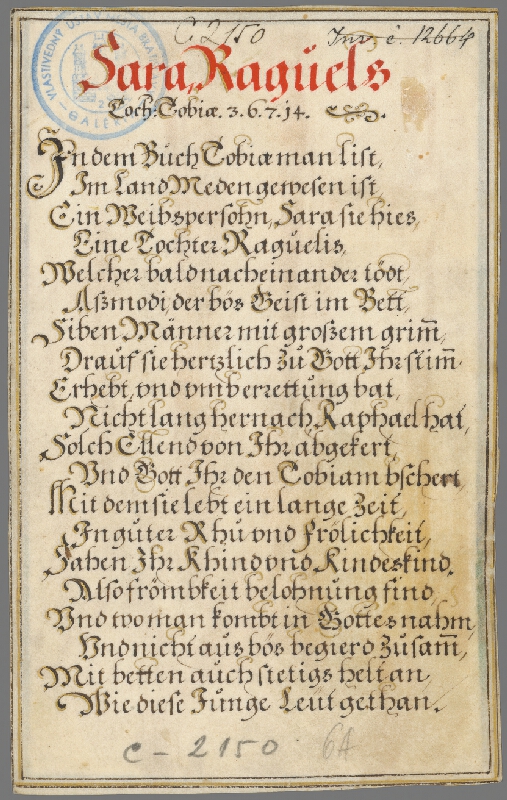 C 2150 Inv. č. 12664
VLASTIVĚDNÝ
Sara, Ragüels
Toch: Tobiæ. 3. 6. 7. 14.
In dem Büch Tobiæ man list,
Im Land Meden gewesen ist,
Ein Weibspersohn, Sara sie hies,
Eine Tochter Ragüelis,
Welcher bald nacheinander tödt,
Aßmodi, der bös Geist im Bett,
Siben Männer mit großem grim̅,
Drauf sie hertzlich zü Gott Ihr stim̅.
Erhebt, vnd vmb errettung bat,
Nicht lang hernach Raphael hat,
Solch Ellend von Ihr abgekert,
Vnd Gott Ihr den Tobiam bschert
Mit dem sie lebt ein lange Zeit,
In güter Rhü vnd Frölichkeit,
Sahen Ihr Khind vnd Kindeskind,
Also frömbkeit belohnüng find,
Vnd wo man kombt in Gottes nahm,
Vnd nicht aüs bös begierd Züsam̅,
Mit betten aüch stetigs helt an,
Wie diese Jünge Leüt gethan.
C - 2150 6A